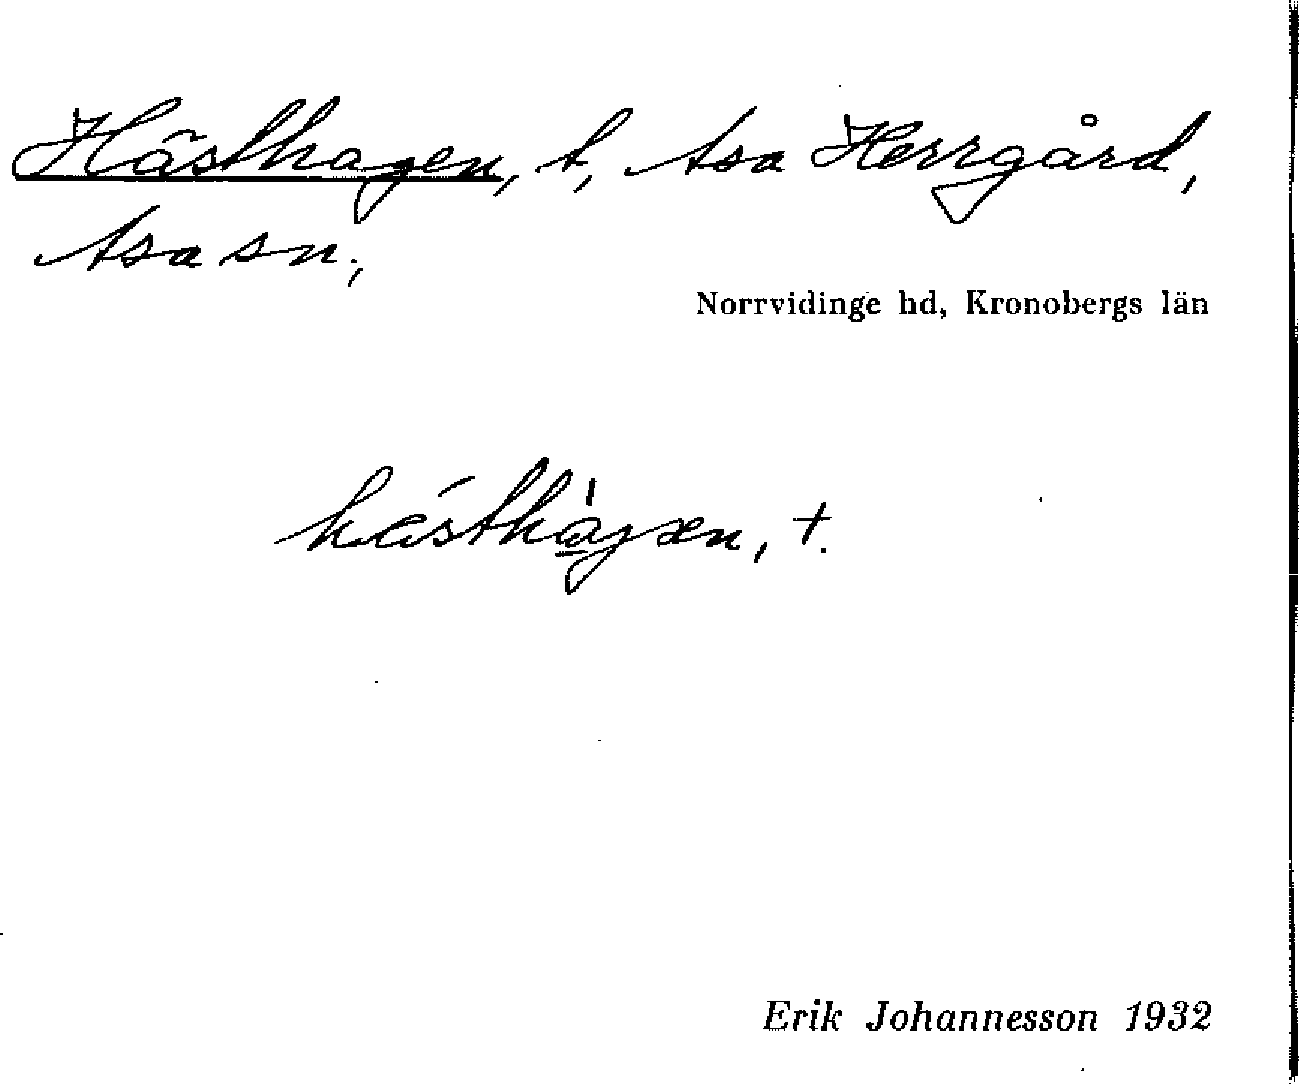 Hästhagen, t, Asa Herrgård,
Asa sn;
Norrvidinge hd, Kronobergs län
hästhagen, t.
Erik Johannesson 1932